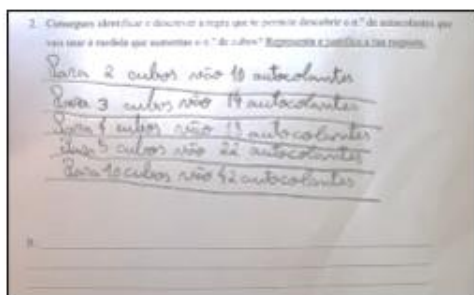 2. Consegues identificar e descrever a regra que te permite descobrir o n.º de autocolantes que
vais usar à medida que aumentas o n.º de cubos? Representa e justifica a tua resposta.
Para 2 cubos vão 10 autocolantes
Para 3 cubos vão 14 autocolantes
Para 4 cubos vão autocolantes
5 cubos vão 22 autocolantes
Para 10 cubos vão 42 autocolantes